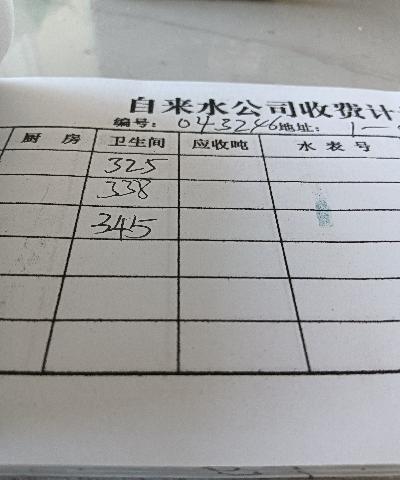 自来水公司收费计
编号: 043246 地址: 1-
厨 房 卫生间 应收吨 水表号
325
338
345